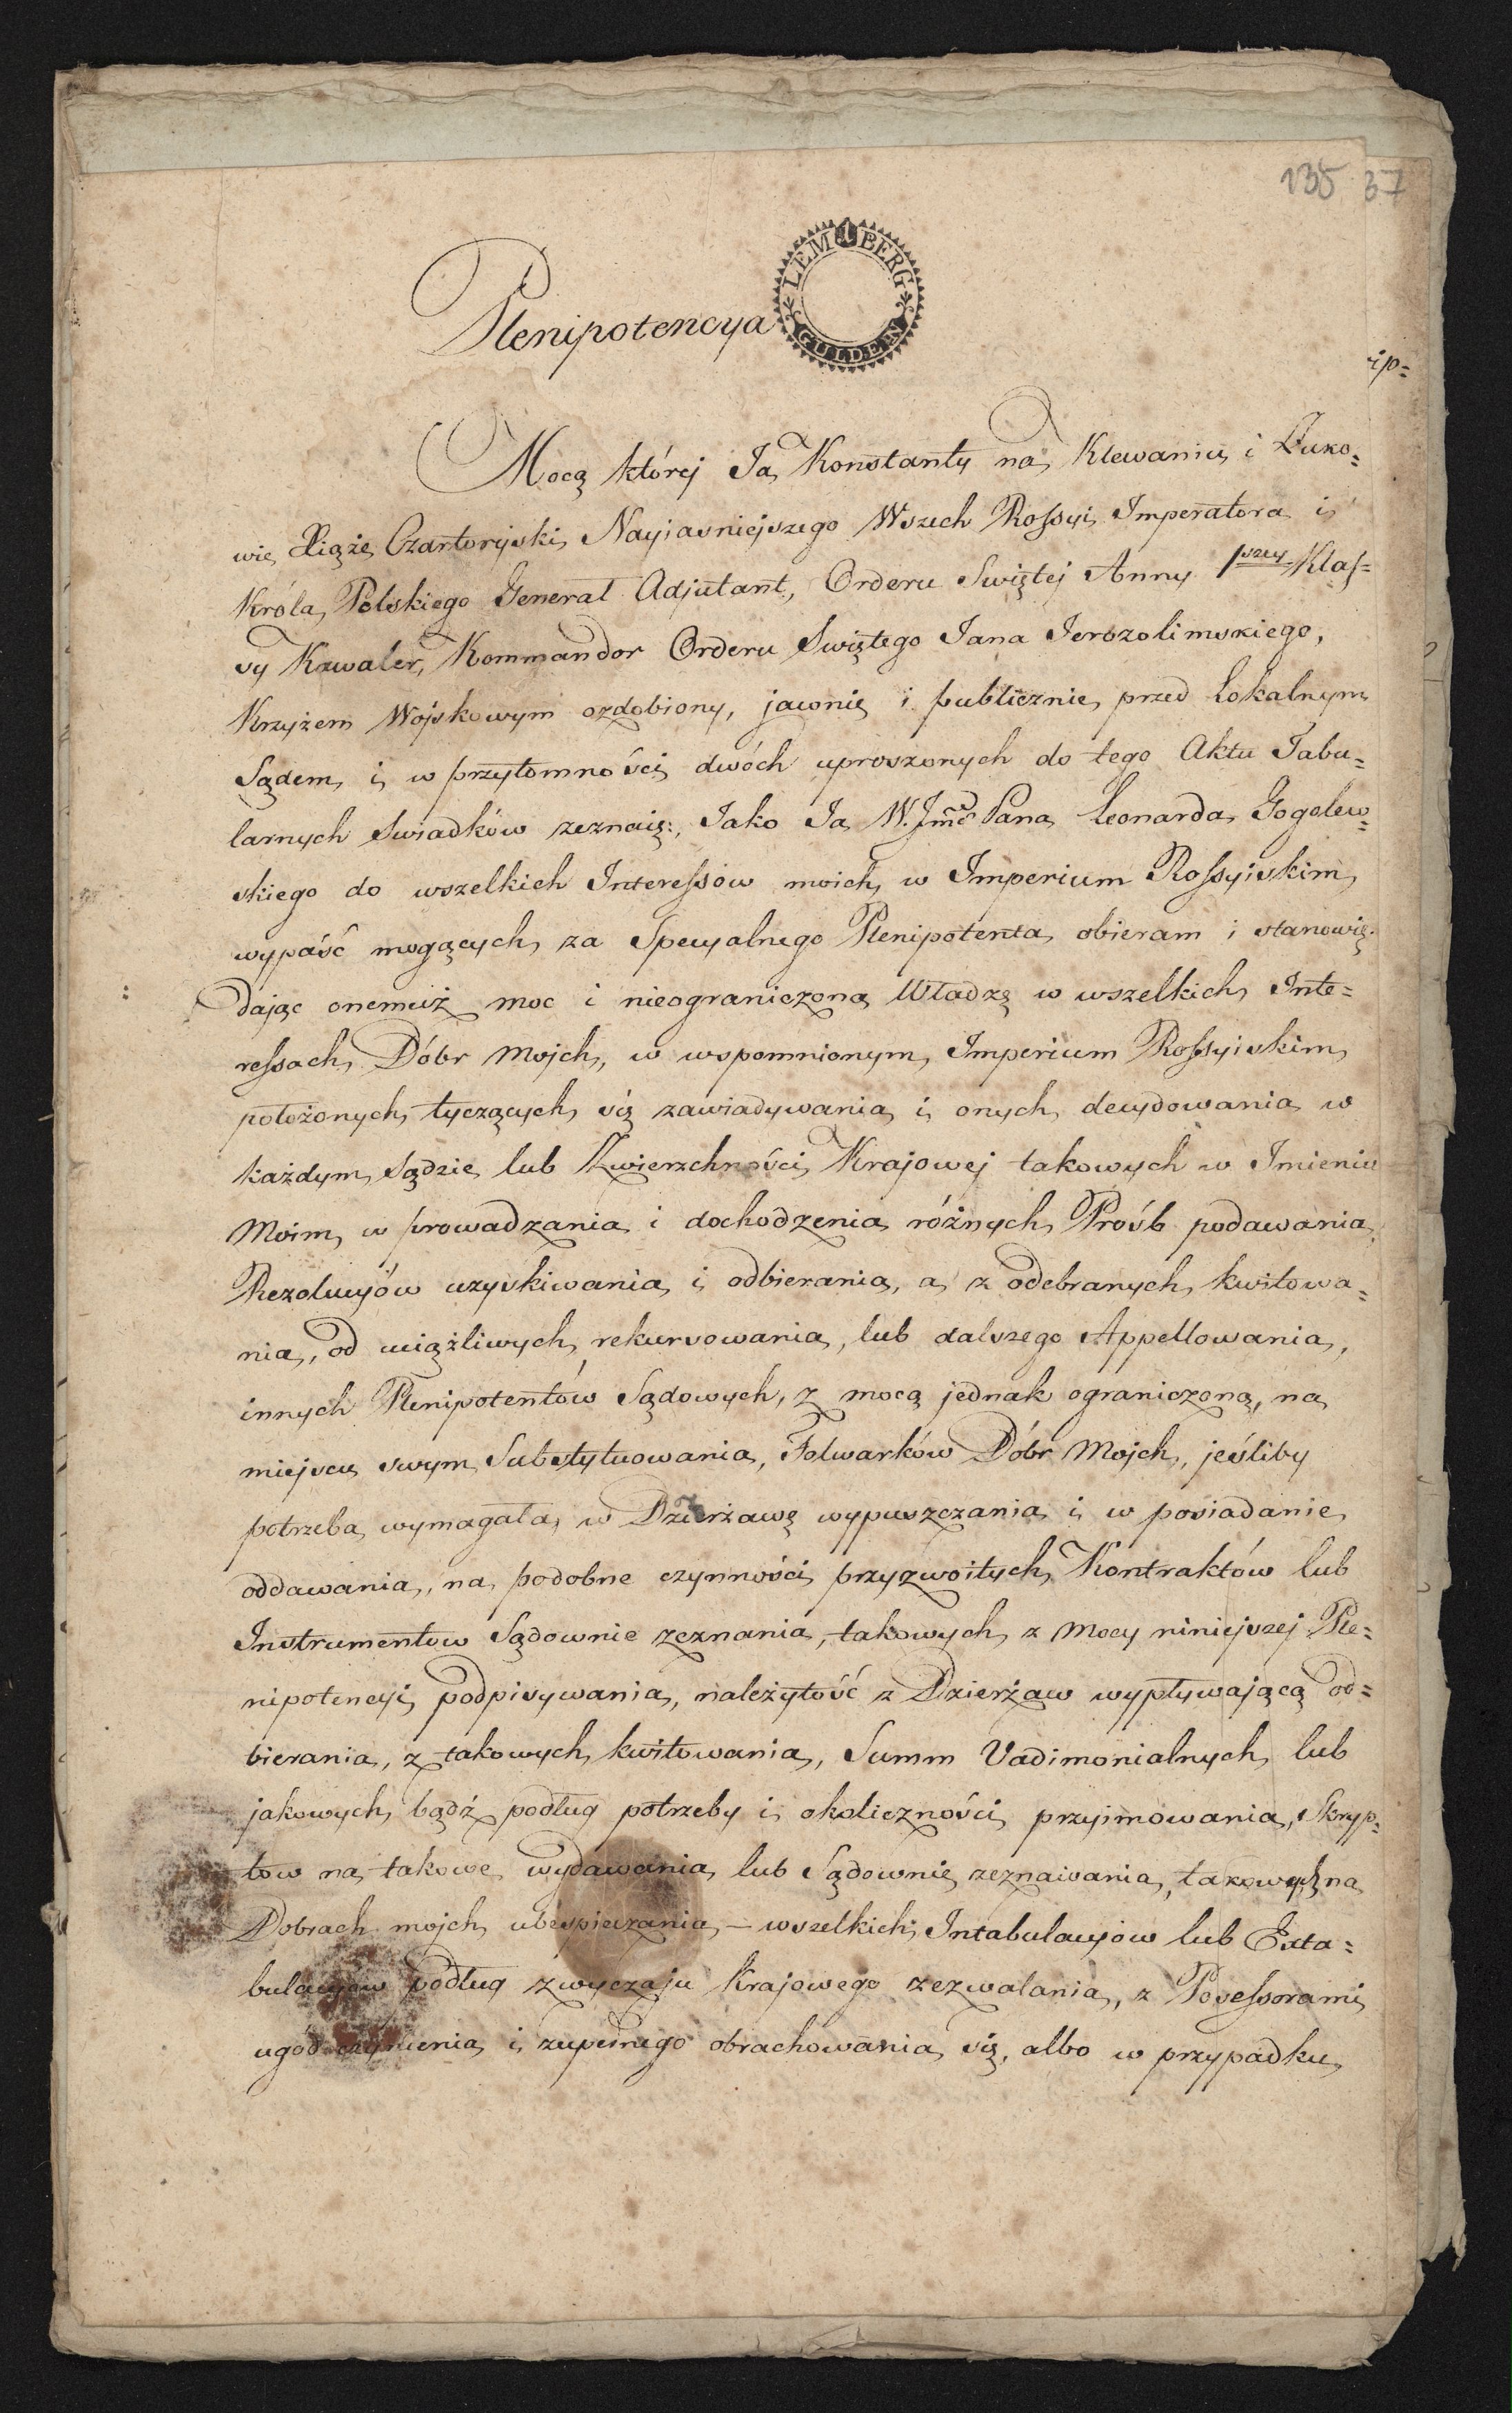 135 37
LEMBERG
1
GULDEN
Plenipotencya
ip=
Mocą której Ja Konstanty na Klewaniu i Żuko=
wie Xiąże Czartoryski Nayjasniejszego Wszech Rossyi Imperatora i
Króla Polskiego General Adjutant, Orderu Swiętej Anny 1szey Klas=
sy Kawaler, Kommandor Orderu Swiętego Jana Jerozolimskiego,
Krzyżem Wojskowym ozdobiony, jawnie i publicznie przed lokalnym
Sądem i w przytomności dwóch uproszonych do tego Aktu Tabu=
larnych Swiadków zeznaię: Jako Ja W. Jmć Pana Leonarda Gogolew=
skiego do wszelkich Interessów moich w Imperium Rossyiskim
wypaść mogących za Specyalnego Plenipotenta obieram i stanowię
dając onemuż moc i nieograniczoną Władzę w wszelkich Inte=
ressach Dóbr Mojch, w wspomnionym Imperium Rossyiskim
położonych tyczących się zawiadywania i onych decydowania w
każdym Sądzie lub Zwierzchności Krajowej takowych w Imieniu
Moim w prowadzania i dochodzenia różnych Prośb podawania
Rezolucyów uzyskiwania i odbierania, a z odebranych kwitowa=
nia, od uciążliwych rekursowania, lub dalszego Appellowania,
innych Plenipotentów Sądowych, z mocą jednak ograniczoną, na
miejscu swym Substytuowania, Folwarków Dóbr Mojch, jeśliby
potrzeba wymagała w Dzierżawę wypuszczania i w posiadanie
oddawania, na podobne czynności przyzwoitych Kontraktów lub
Instrumentow Sądownie zeznania, takowych z Mocy niniejszej Ple=
nipotencyi podpisywania, należytość z Dzierżaw wypływającą od=
bierania, z takowych kwitowania, Summ Vadimonialnych lub
jakowych bądź podług potrzeby i okoliczności przyimowania, Skryp=
tow na takowe wydawania lub Sądownie zeznaivania, takowych na
Dobrach mojch ubespieczania, – wszelkich Intabulacyow lub Exta=
bulacyow podług zwyczaju Krajowego zezwalania, z Possessorami
ugód czynienia i zupełnego obrachowania się, albo w przypadku